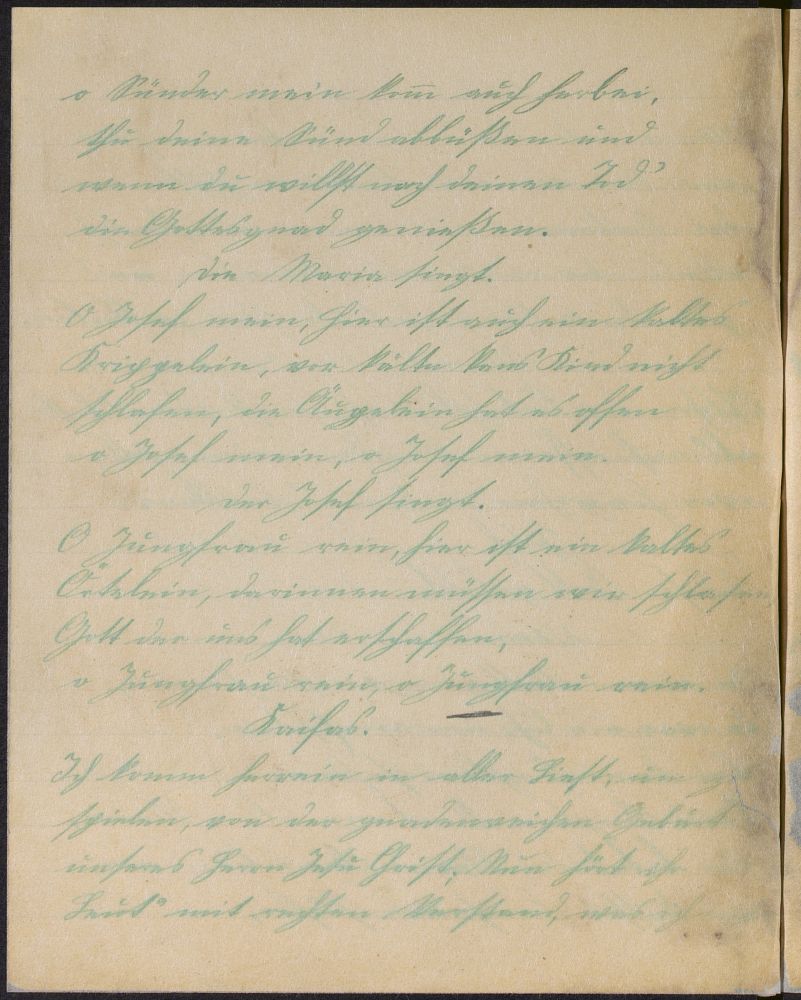 o Sünder mein kom̅ auch herbei,
thu deine Sünd abbüßen und
wenn du willst nach deinen Tod
die Gottesgnad genießen.
Die Maria singt.
O Josef mein, hier ist auch ein kaltes
Krippelein, vor kälte kans Kind nicht
schlafen, die Äugelein hat es offen
o Josef mein, o Josef mein.
Der Josef singt.
O Jungfrau rein, hier ist ein kaltes
Örtelein, darinnen müssen wir schlafen
Gott der uns hat erschaffen,
o Jungfrau rein, o Jungfrau rein.
Kaifas.
Ich komm herrein in aller
spielen, von der gnadenreichen Geburt
unseres Herrn Jesu Christ. Nun hört ihr
Leut mit rechten Verstand, was ich